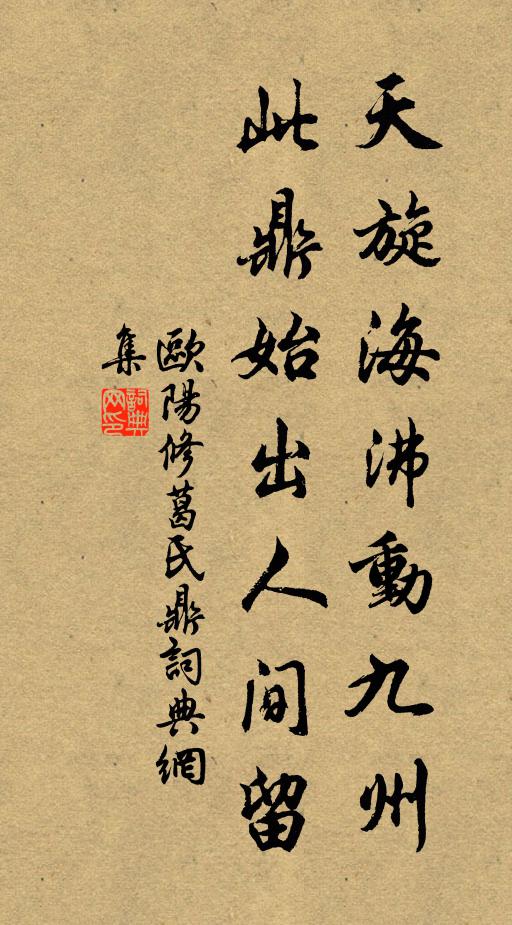 天旋海沸動九州
此鼎始出人间留
歐陽修葛氏鼎詞典網
集
詞典網印